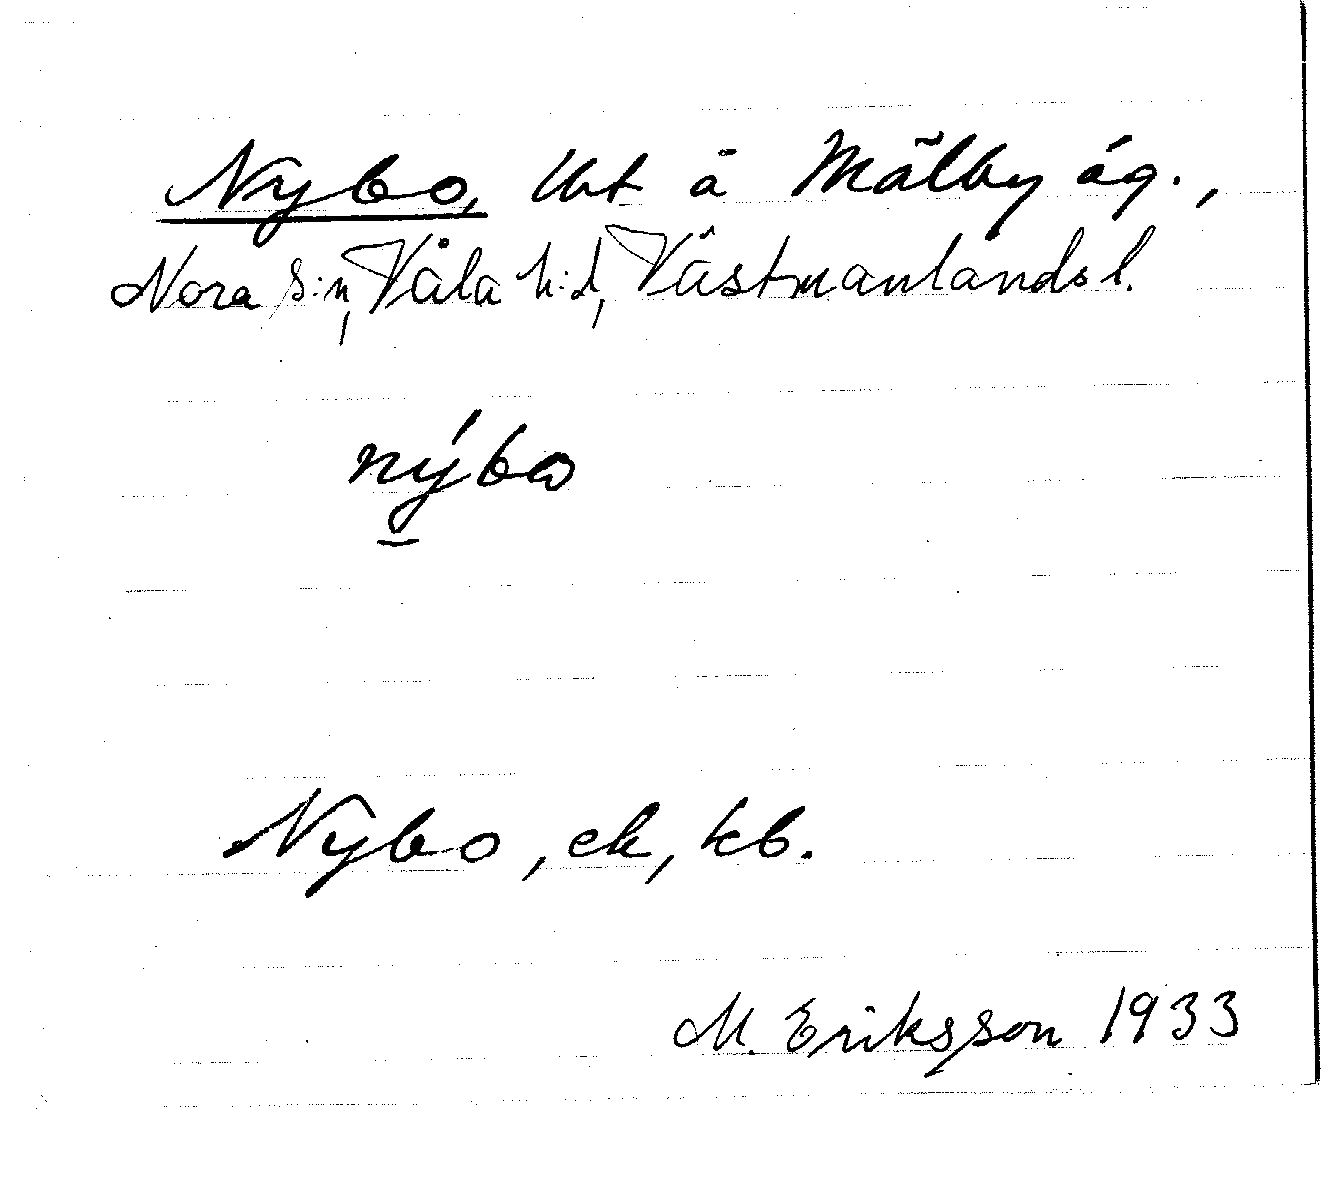 Nybo, lht å Målby äg.,
Nora s:n, Våla h:d, Västmanlands l.
nýbo
Nybo, ek, kb.
M. Eriksson 1933